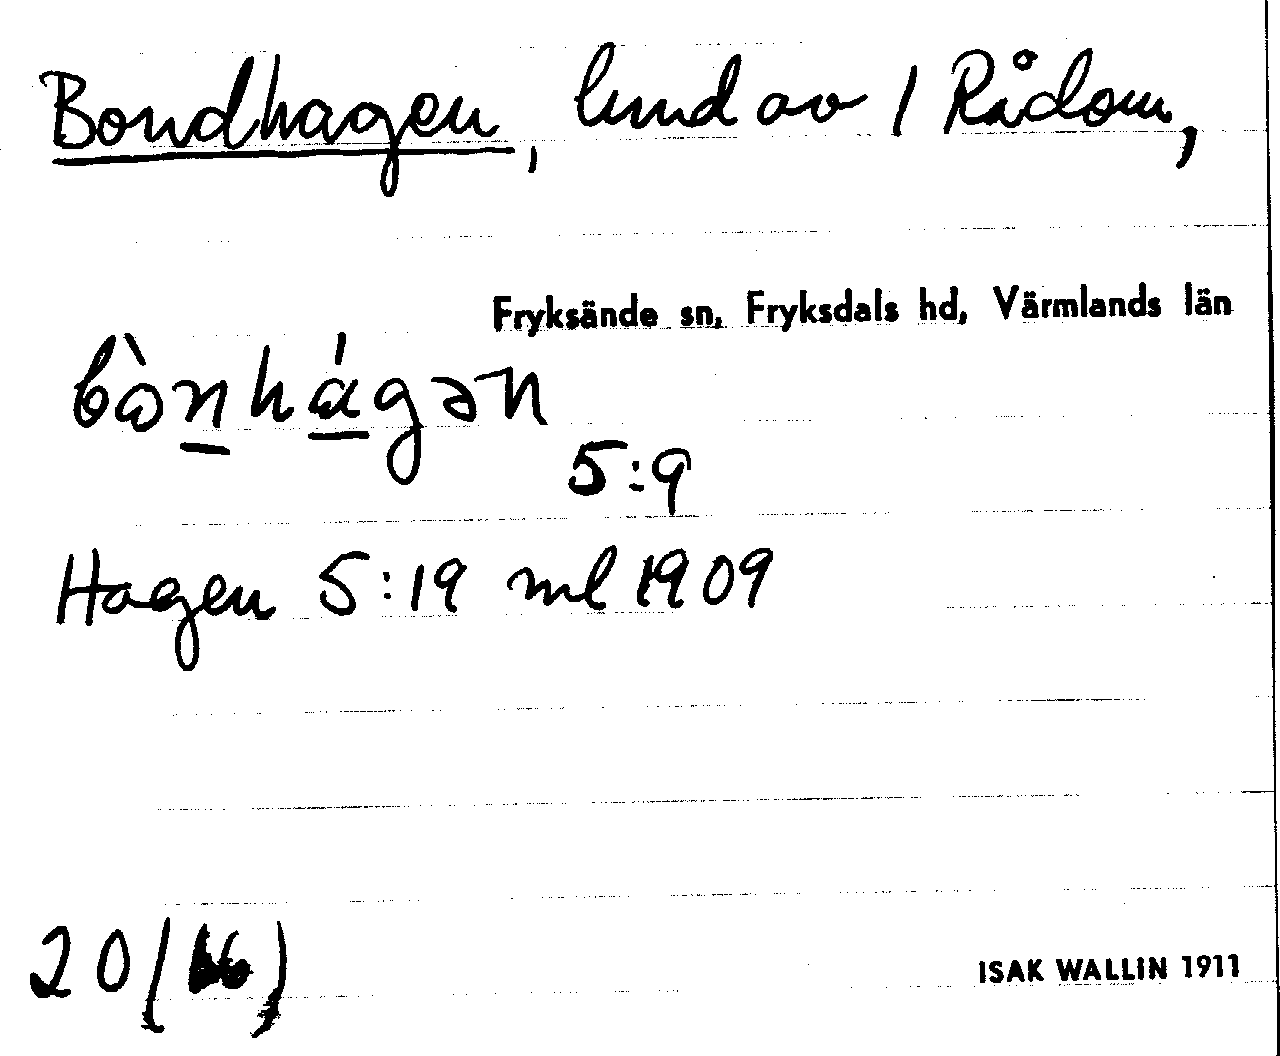 Bondhagen, lund av 1 Rådom,
Fryksände sn, Fryksdals hd, Värmlands län
bònhágən
5:9
Hagen 5:19 ml 1909
20 (16)
ISAK WALLIN 1911